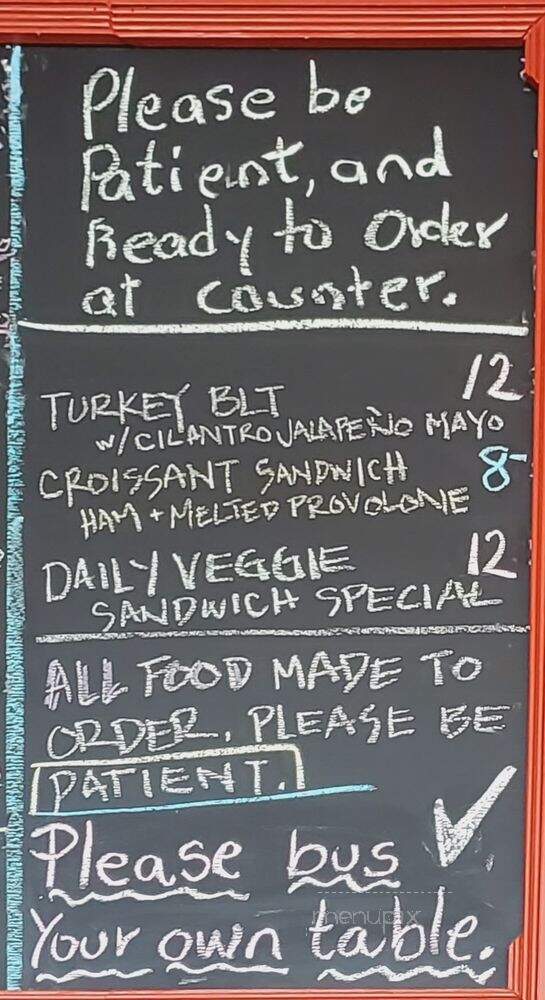 Please be
Patient, and
Ready to Order
at counter.
TURKEY BLT 12
w/CILANTRO JALAPEÑO MAYO
CROISSANT SANDWICH 8-
HAM + MELTED PROVOLONE
DAILY VEGGIE 12
SANDWICH SPECIAL
ALL FOOD MADE TO
ORDER, PLEASE BE
PATIENT.
Please bus ✓
Your own table.
menupix